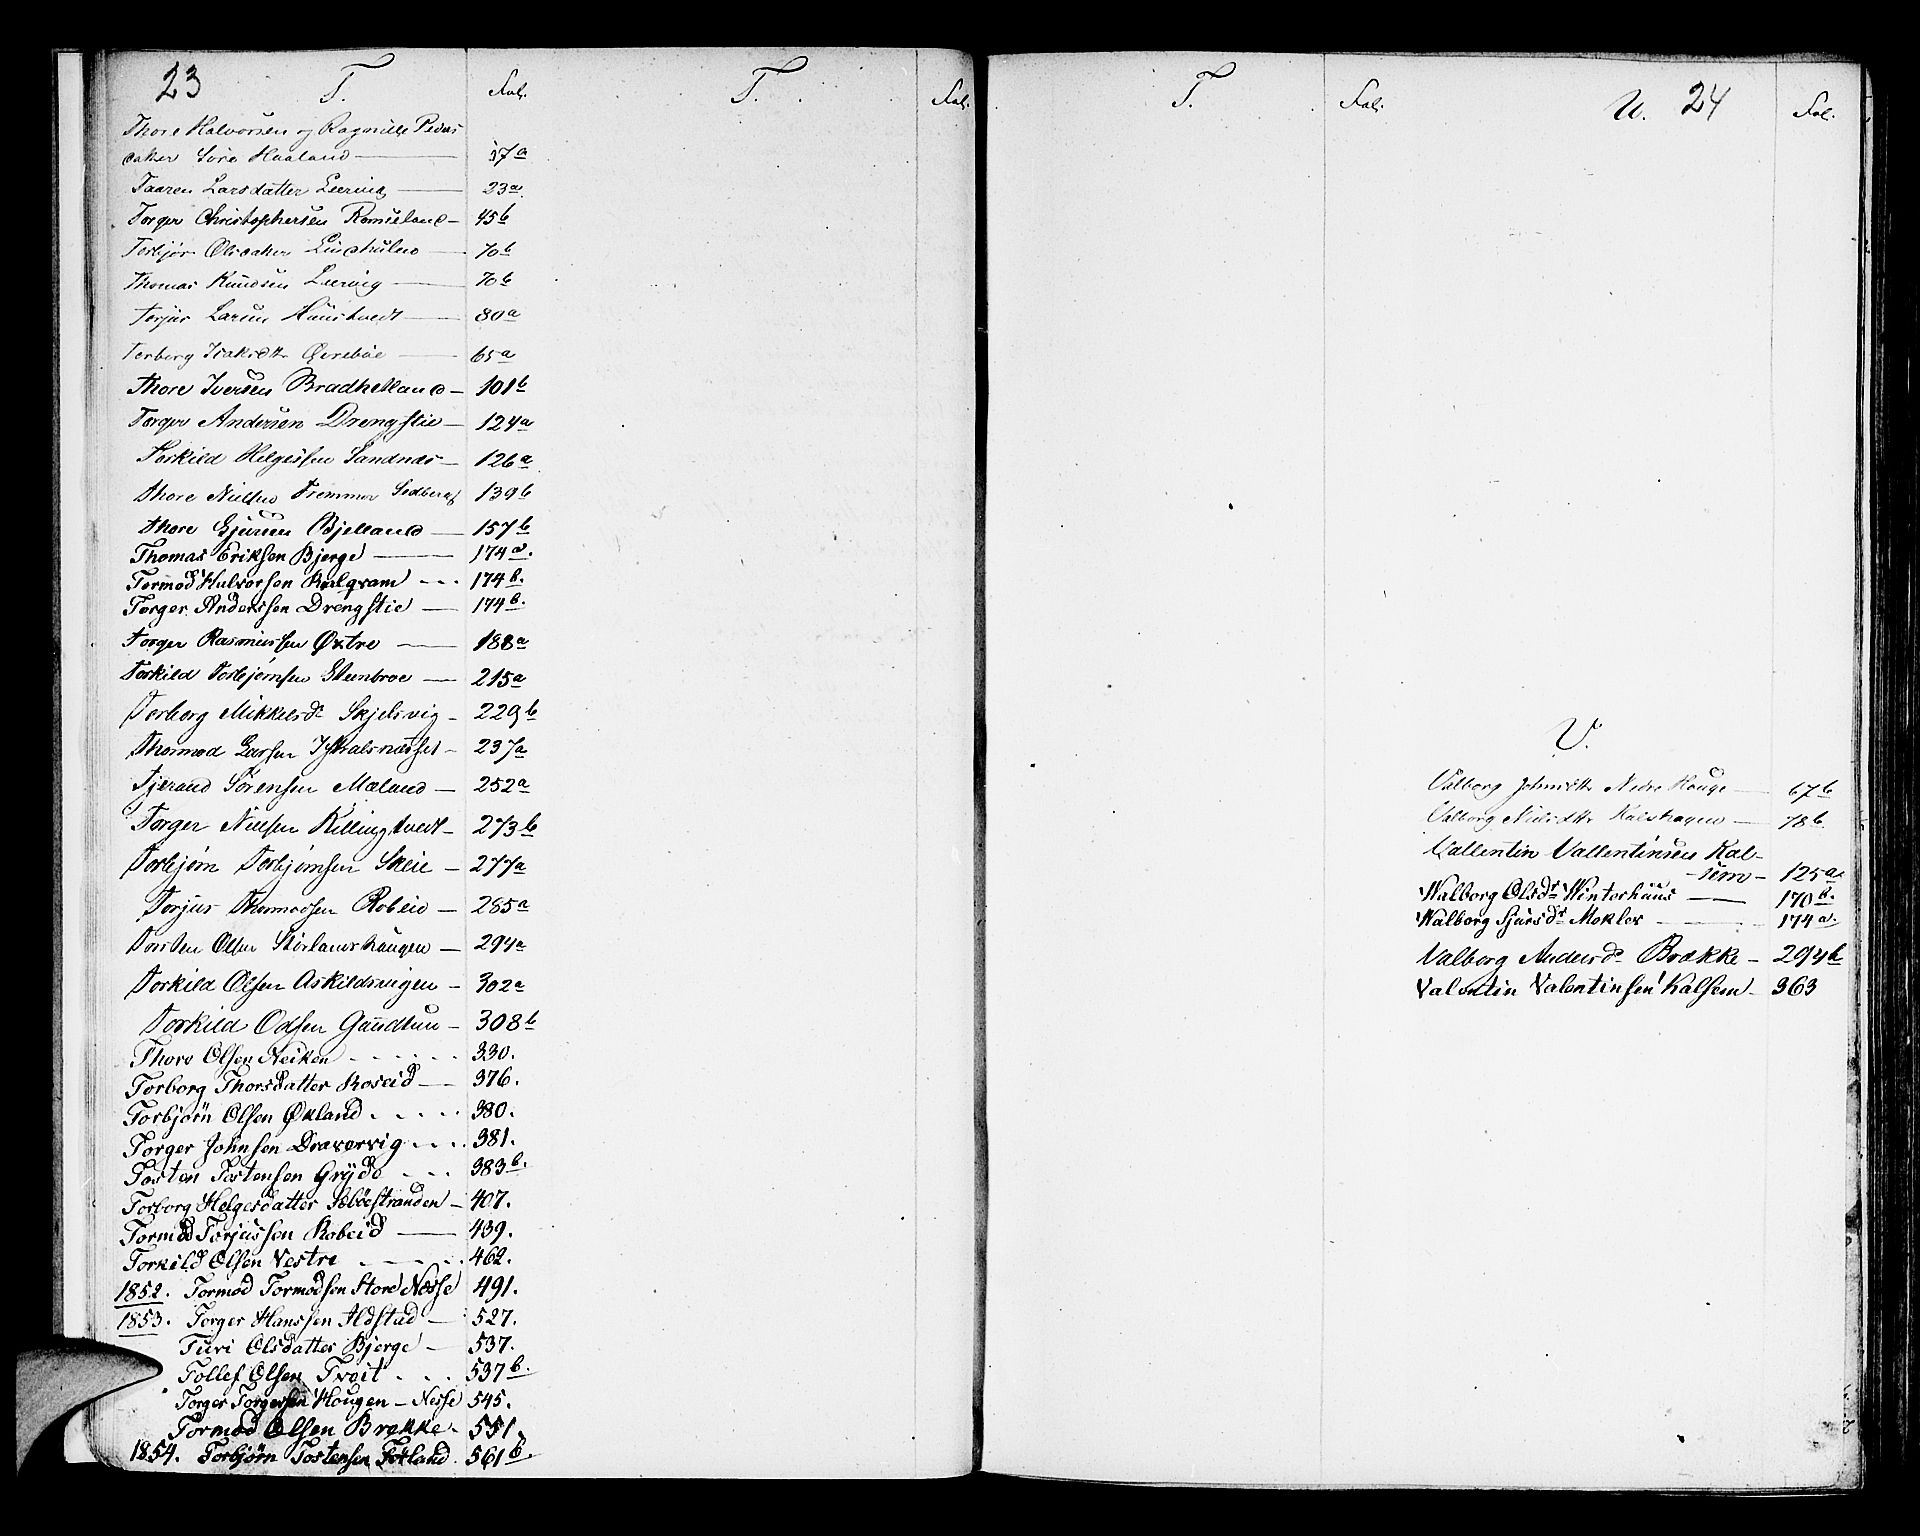 23
T.
Fol.
T.
Fol.
Thore Halvorsen og Ragnille Peders
datter Søre Haaland — 17a
Taaren Larsdatter Leervig — 23a
Torger Christophersen Ramsland — 45b
Torbjør Olsdatter — 70b
Thomas Knudsen Leervig — 70b
Torjus Larsen Haustvedt — 80a
Torborg Isaksdtr Øvrebøe — 65a
Thore Iversen Bradhelland — 101b
Torger Andersen Drengstie — 124a
Torkild Helgessen Sandnæs — 126a
Thore Nielsen Tremmer Sedberg 139b
Thore Sjursen Bjelland — 157b
Thomas Eriksen Bjerge — 174a.
Tormod Halvorsen Kalgram - - - 174b.
Torger Anderssen Drengstie — 174b.
Torger Rasmussen Øxtre — 188a
Torkild Torbjørnsen Steenbroe — 215a
Torborg Mikkelsdr Skjelsvig - 229b
Thormod Larsen - 237a
Tjerand Sørensen Mæland — 252a
Torger Nielsen Killingtvedt — 273b
Torbjørn Torbjørnsen Skeie — 277a
Torjus Thormodsen Robeid — 285a
Torsten Olsen Skirlandshaugen — 294a
Torkild Olsen Askildsningen — 302a
Torkild Olsen Gaudtun — 308b
Thore Olsen Neiken - - - - - - 330.
Torborg Thorsdatter Roseid — 376.
Torbjørn Olsen Økland . - - - - 380.
Torger Johnsen Draxervig - - - . 381.
Tosten Tostensen Gryde - - - 383b.
Torborg Helgesdatter Sæbøestranden — 407.
Tormod Torjussen Robeid — 439.
Torkild Olsen Vestre - - - - - 462.
1852. Tormod Tormodsen Store Nesse 491.
1853. Torger Hanssen Aldstad — 527.
Turi Olsdatter Bjerge — 537.
Tollef Olsen Tveit . . . 537b.
Torger Torgersen Hougen — Nesse 545.
Tormod Olsen Brekke . 551.
1854. Torbjørn Tostensen Tøtland . 561b.
T.
Fol.
U.
24
Fol.
V.
Valborg Johnsdtr Nedre Houge — 67b
Valborg Nielsdtr Kalshagen — 78b
Vallentin Vallentinsen Kal-
-sem — 125a
Walborg Olsdr Winterhuus — 170b.
Walborg Sjursdr Mokler — 174a.
Valborg Andersdr Brække — 294b
Valentin Valentinsen Kalsem — 363